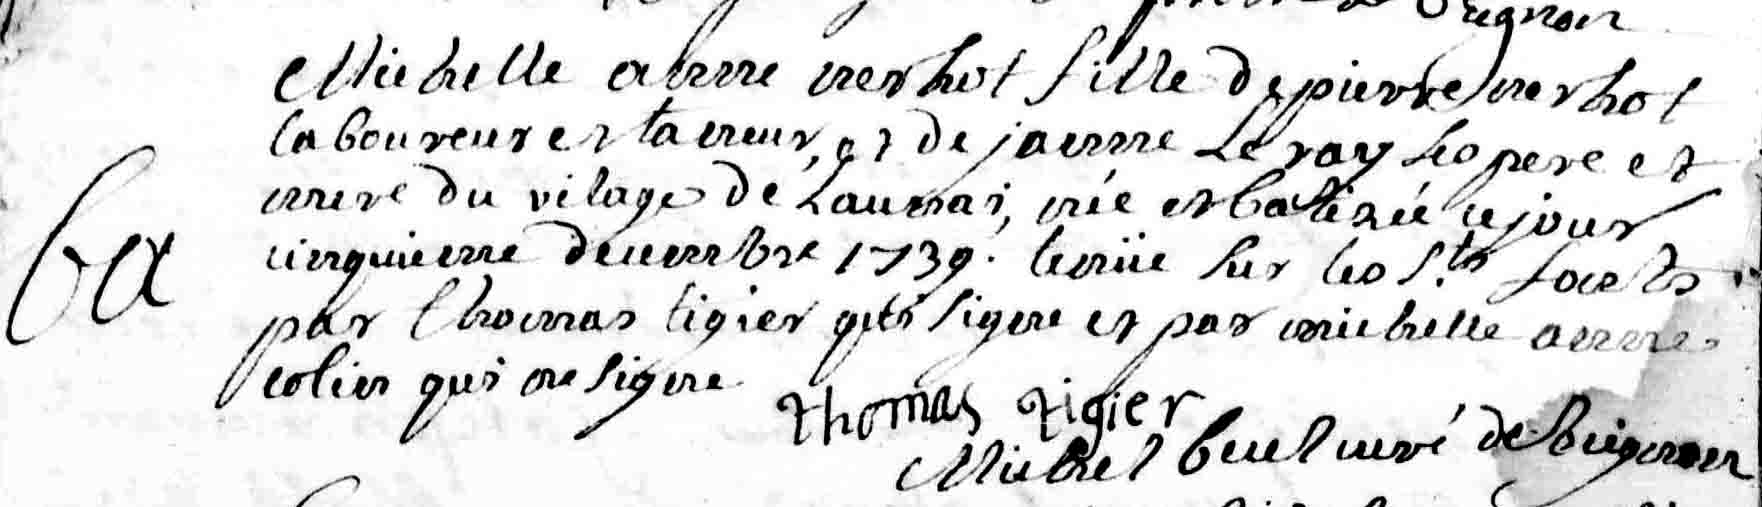 Michelle anne nerhot fille de pierre nerhot
laboureur et ta neur, et de jaenne Le ray ses pere et
mere du vilage de Launai, née et batisée ce jour
cinquieme decembre 1739. tenüe sur les S.ts foets
par thomas tigier qui signe et par michelle anne
colin qui ne signe
thomas tigier
Michel curé de
ba